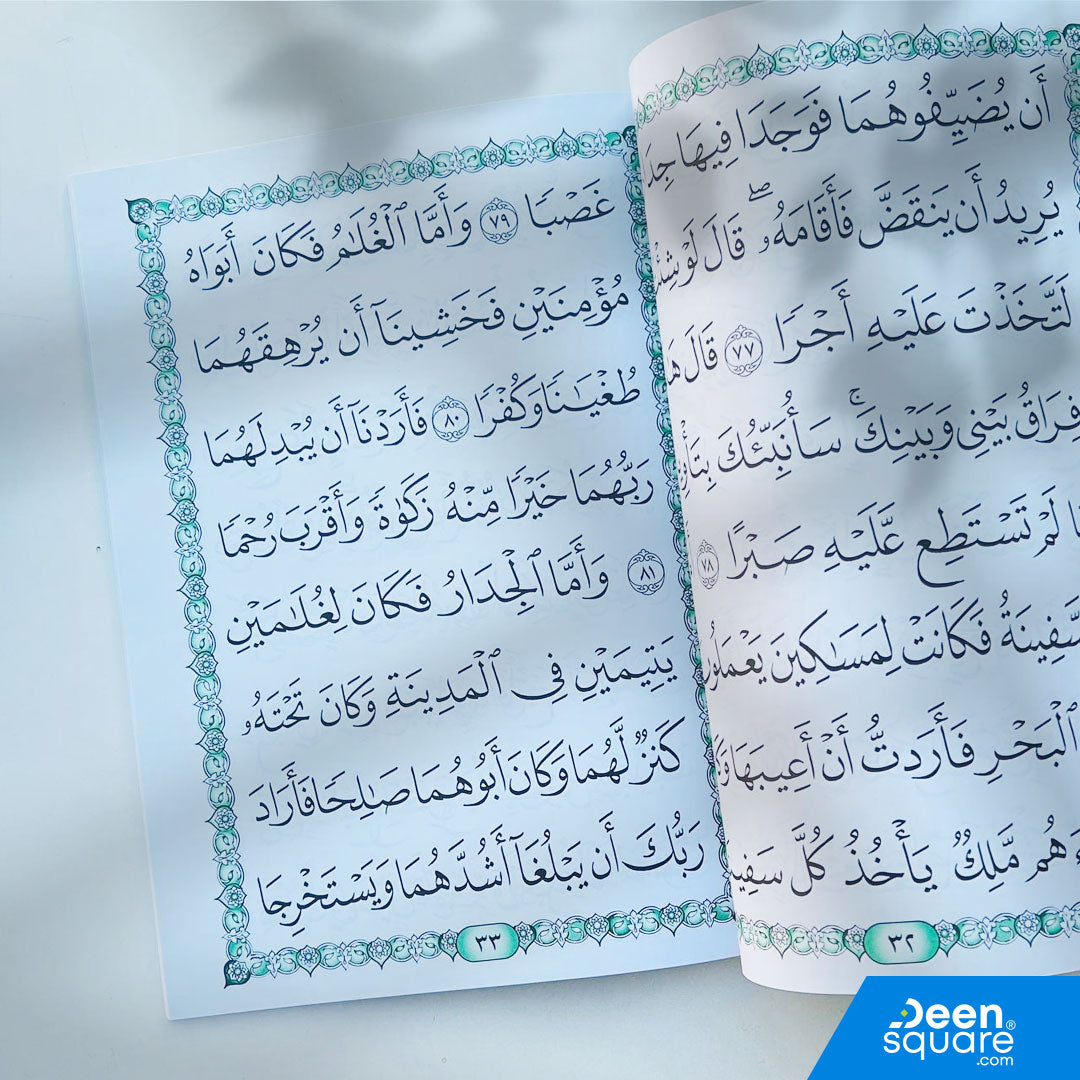 أَن يُضَيِّفُوهُمَا فَوَجَدَا فِيهَا
يُرِيدُ أَن يَنقَضَّ فَأَقَامَهُۥۖ قَالَ لَوْ
لَتَّخَذْتَ عَلَيْهِ أَجْرًا ٧٧ قَالَ
فِرَاقُ بَيْنِى وَبَيْنِكَۚ سَأُنَبِّئُكَ
لَمْ تَسْتَطِع عَّلَيْهِ صَبْرًا ٧٨
فَكَانَتْ لِمَسَـٰكِينَ
ٱلْبَحْرِ فَأَرَدتُّ أَنْ أَعِيبَهَا
مَّلِكٌ يَأْخُذُ كُلَّ
٣٢
غَصْبًا ٧٩ وَأَمَّا ٱلْغُلَـٰمُ فَكَانَ أَبَوَاهُ
مُؤْمِنَيْنِ فَخَشِينَآ أَن يُرْهِقَهُمَا
طُغْيَـٰنًا وَكُفْرًا ٨٠ فَأَرَدْنَآ أَن يُبْدِلَهُمَا
رَبُّهُمَا خَيْرًا مِّنْهُ زَكَوٰةً وَأَقْرَبَ رُحْمًا
٨١ وَأَمَّا ٱلْجِدَارُ فَكَانَ لِغُلَـٰمَيْنِ
يَتِيمَيْنِ فِى ٱلْمَدِينَةِ وَكَانَ تَحْتَهُۥ
كَنزٌ لَّهُمَا وَكَانَ أَبُوهُمَا صَـٰلِحًا فَأَرَادَ
رَبُّكَ أَن يَبْلُغَآ أَشُدَّهُمَا وَيَسْتَخْرِجَا
٣٣
Deen
square®
.com